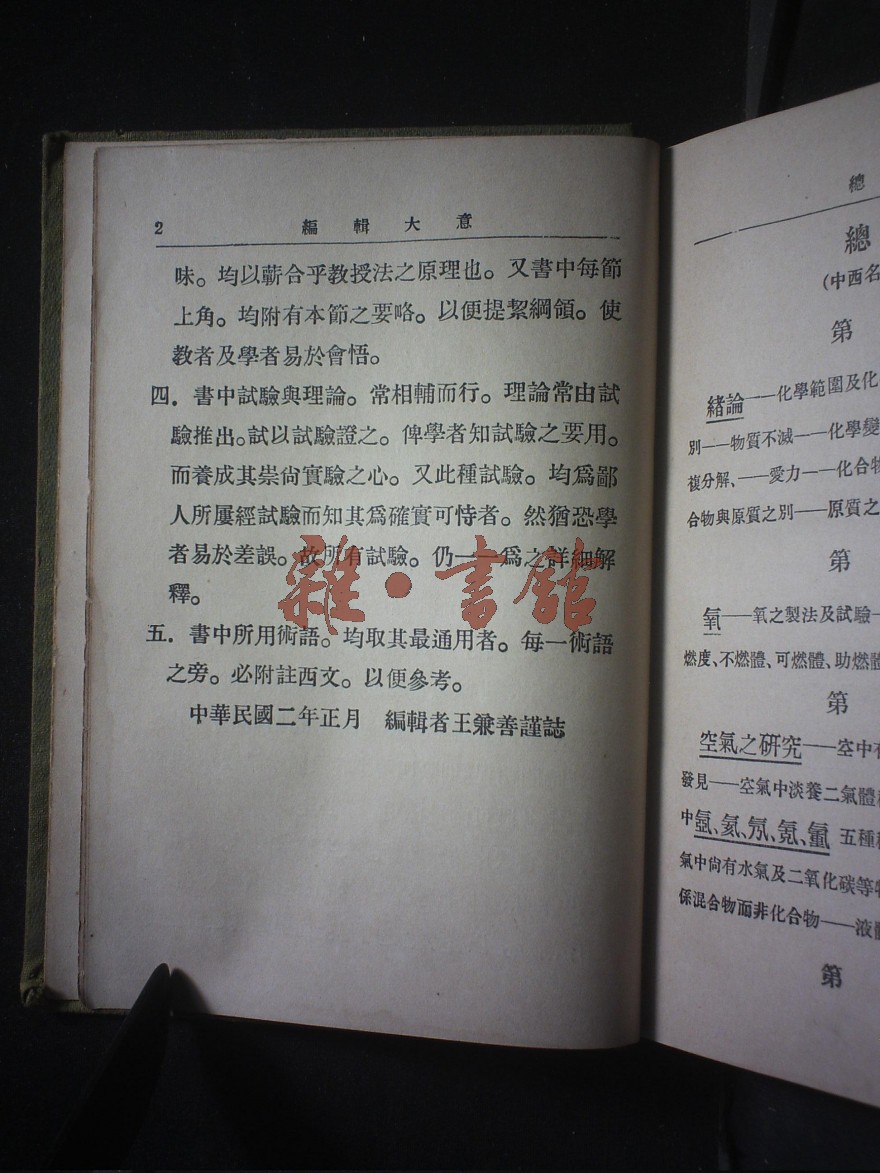 2 編輯大意
味。均以蘄合乎教授法之原理也。又書中每節
上角。均附有本節之要略。以便提絜綱領。使
教者及學者易於會悟。
四．書中試驗與理論。常相輔而行。理論常由試
驗推出。試以試驗證之。俾學者知試驗之要用。
而養成其崇尙實驗之心。又此種試驗。均爲鄙
人所屢經試驗而知其爲確實可恃者。然猶恐學
者易於差誤。故所有試驗。仍一一爲之詳細解
釋。
五．書中所用術語。均取其最通用者。每一術語
之旁。必附註西文。以便參考。
中華民國二年正月 編輯者王兼善謹誌
雜·書館
總
總
(中西名
第
緖論——化學範圍及化
別——物質不滅——化學變
複分解、——愛力——化合物
合物與原質之別——原質之
第
氧——氧之製法及試驗—
燃度、不燃體、可燃體、助燃體
第
空氣之硏究——空中有
發見——空氣中淡養二氣體
中氬、氦、氖、氪、氙 五種
氣中尙有水氣及二氧化碳等物
係混合物而非化合物——液體
第